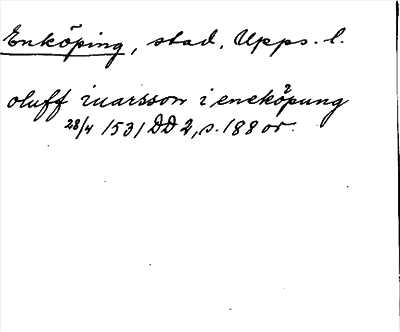 Enköping, stad, Upps. l.
oluff iuarsson i eneköpung
28/4 1531 DD 2, s. 188 or.